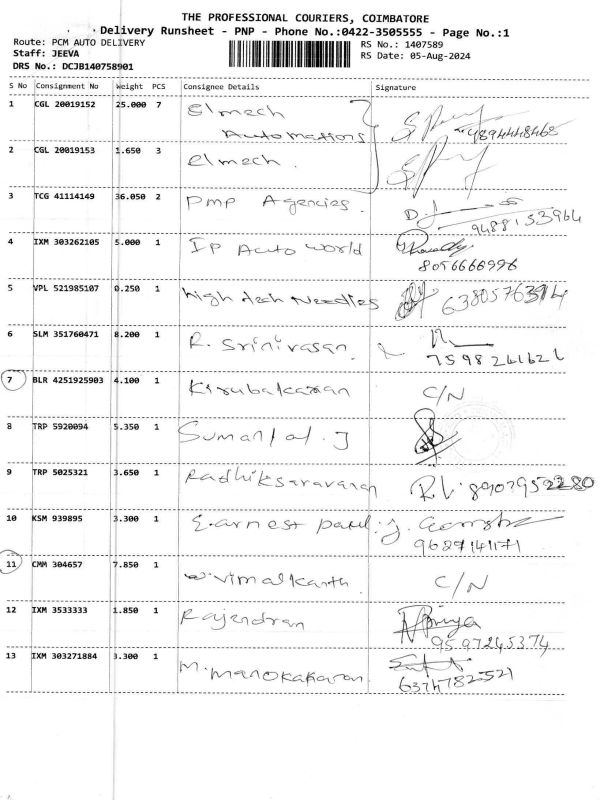 THE PROFESSIONAL COURIERS, COIMBATORE
Delivery Runsheet - PNP - Phone No.:0422-3505555 - Page No.:1
Route: PCM AUTO DELIVERY RS No.: 1407589
Staff: JEEVA RS Date: 05-Aug-2024
DRS No.: DCJB140758901
S No Consignment No Weight PCS Consignee Details Signature
1 CGL 20019152 25.000 7 Elmech
Automations 9894448468
2 CGL 20019153 1.650 3 elmech.
3 TCG 41114149 36.050 2 Pmp Agencies.
9488153964
4 IXM 303262105 5.000 1 Ip Auto world
8056666996
5 VPL 521985107 0.250 1 High tech Needles
6 SLM 351760471 8.200 1 R. Srinivasan
7598241621
7 BLR 4251925903 4.100 1 Kirubakaran C/N
8 TRP 5920094 5.350 1
9 TRP 5025321 3.650 1 Radhiksaravanan
10 KSM 939895 3.300 1 Earnest paul.
9629141171
11 CMM 304657 7.850 1 Vimalkanth C/N
12 IXM 3533333 1.850 1 Rajendran Priya
9597245374
13 IXM 303271884 3.300 1 M. Manokakaran
6374782521